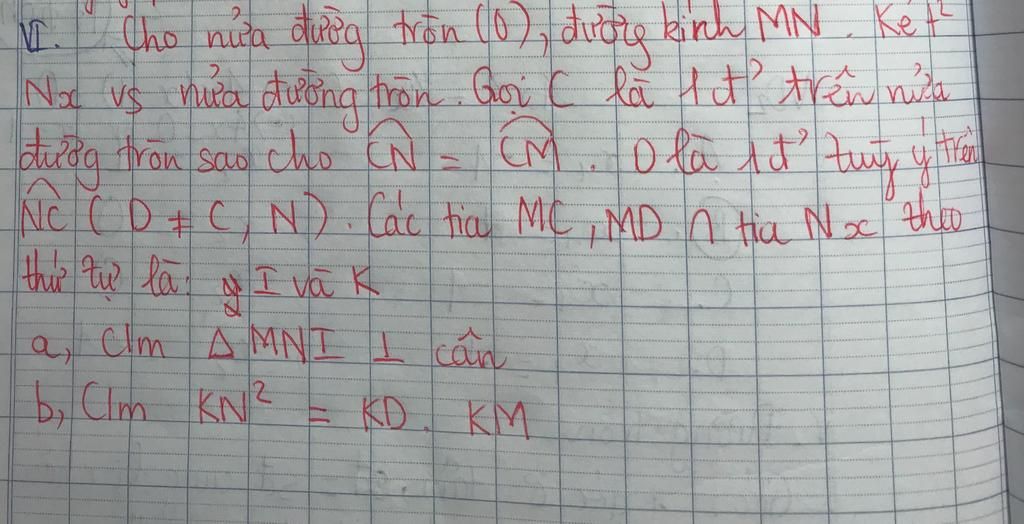 VI. Cho nửa đường tròn (O), đường kính MN. Kẻ t²
Nx vs nửa đường tròn. Gọi C là 1 đ' trên nửa
đường tròn sao cho CN = CM. D là 1 đ' tuỳ ý trên
NC (D ≠ C, N). Các tia MC, MD ∩ tia Nx theo
thứ tự là: I và K
a, C/m Δ MNI ⊥ cân
b, C/m KN² = KD. KM